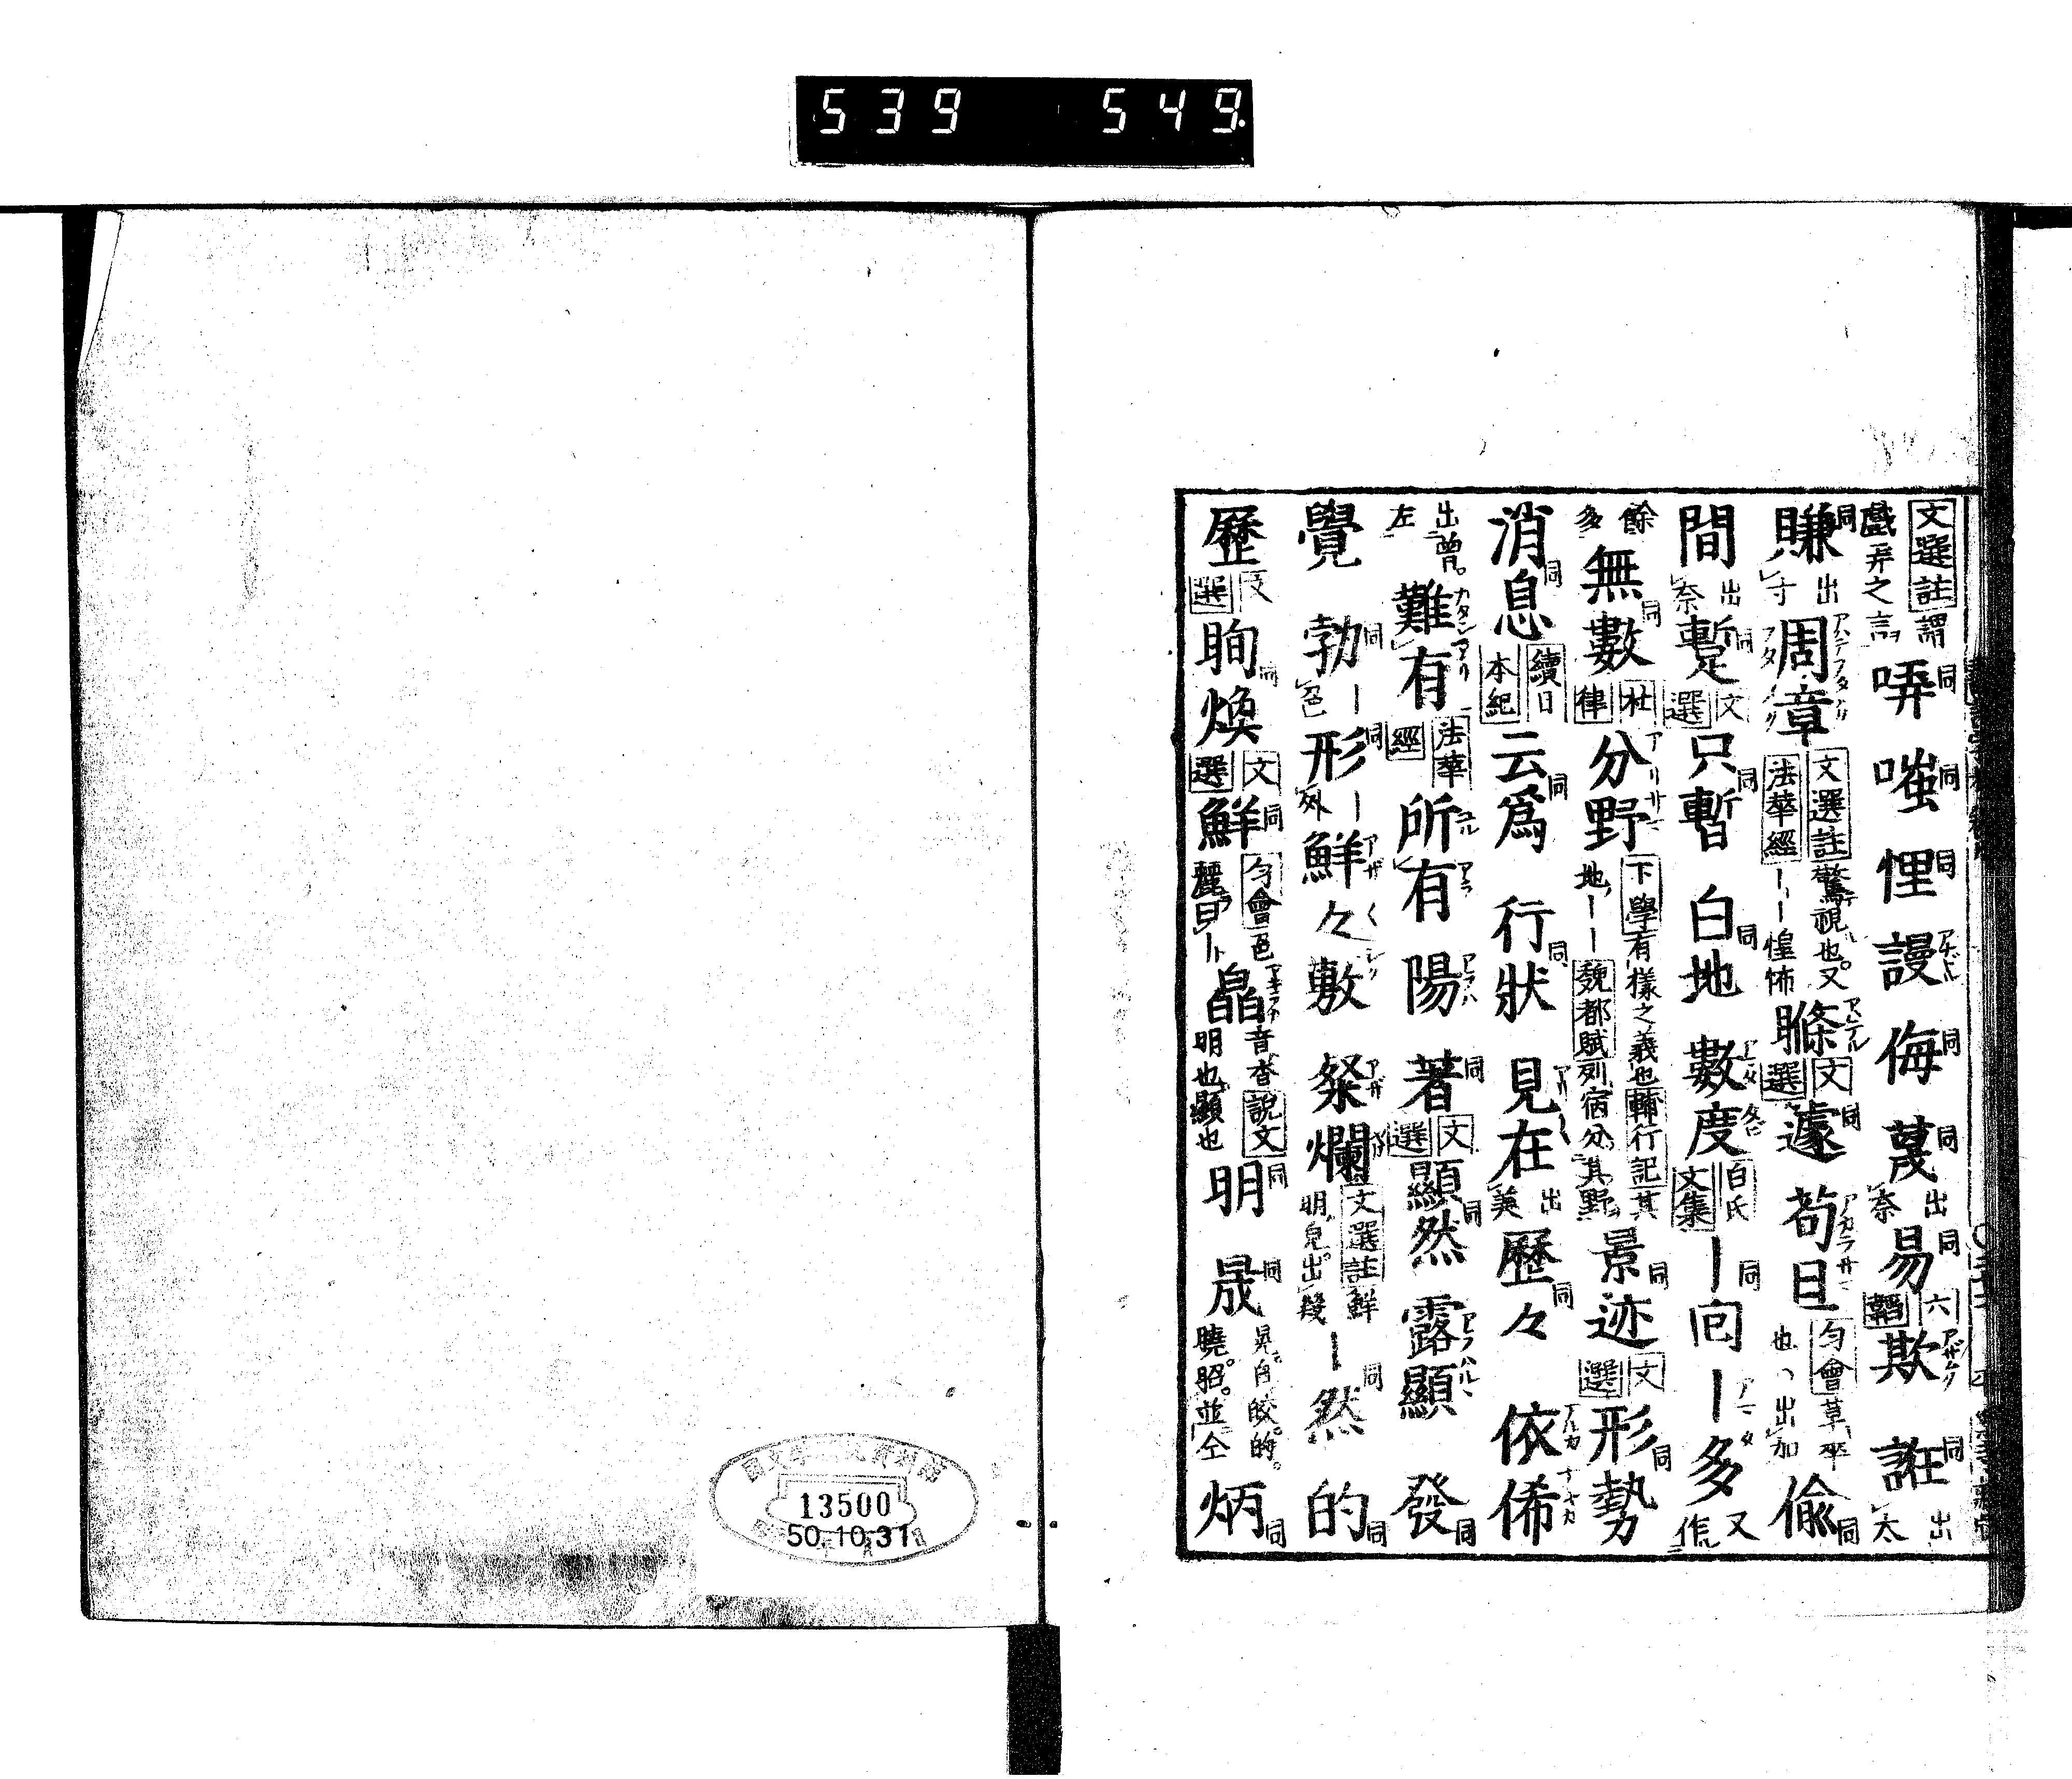 539 549
文選註謂戯弄之言 哢同 嗤同 悝同 謾 侮同 蔑同出奈 易同六韜 欺 誑同出太
賺同出寸 周章文選註驚視也又法華經――惶怖 瞈文選 遽同 苟且匀會草卒也出加 偸同
間出奈 蹔同文選 只暫同 白地同 數度白氏文集 ―回同 ―多又作
餘多 無數同杜律 分野下學有樣之義也輔行記其地――魏都賦列宿分其野 景迹同文選 形勢同
消息同續日本紀 云爲同 行狀同 見在出美 歷々同 依俙
出曽左 難有法華經 所有 陽 著同文選 顯然同 露顯 發同
覺 勃―同色 形―同外 鮮々 敷 粲爛文選註鮮明皃出幾 ―然同 的同
歷文選 眴煥文選 鮮同匀會色麗曰― 皛音杳說文明也顯也 明同 晟同晃自皎的曉昭並仝 炳同
13500
50.10.31